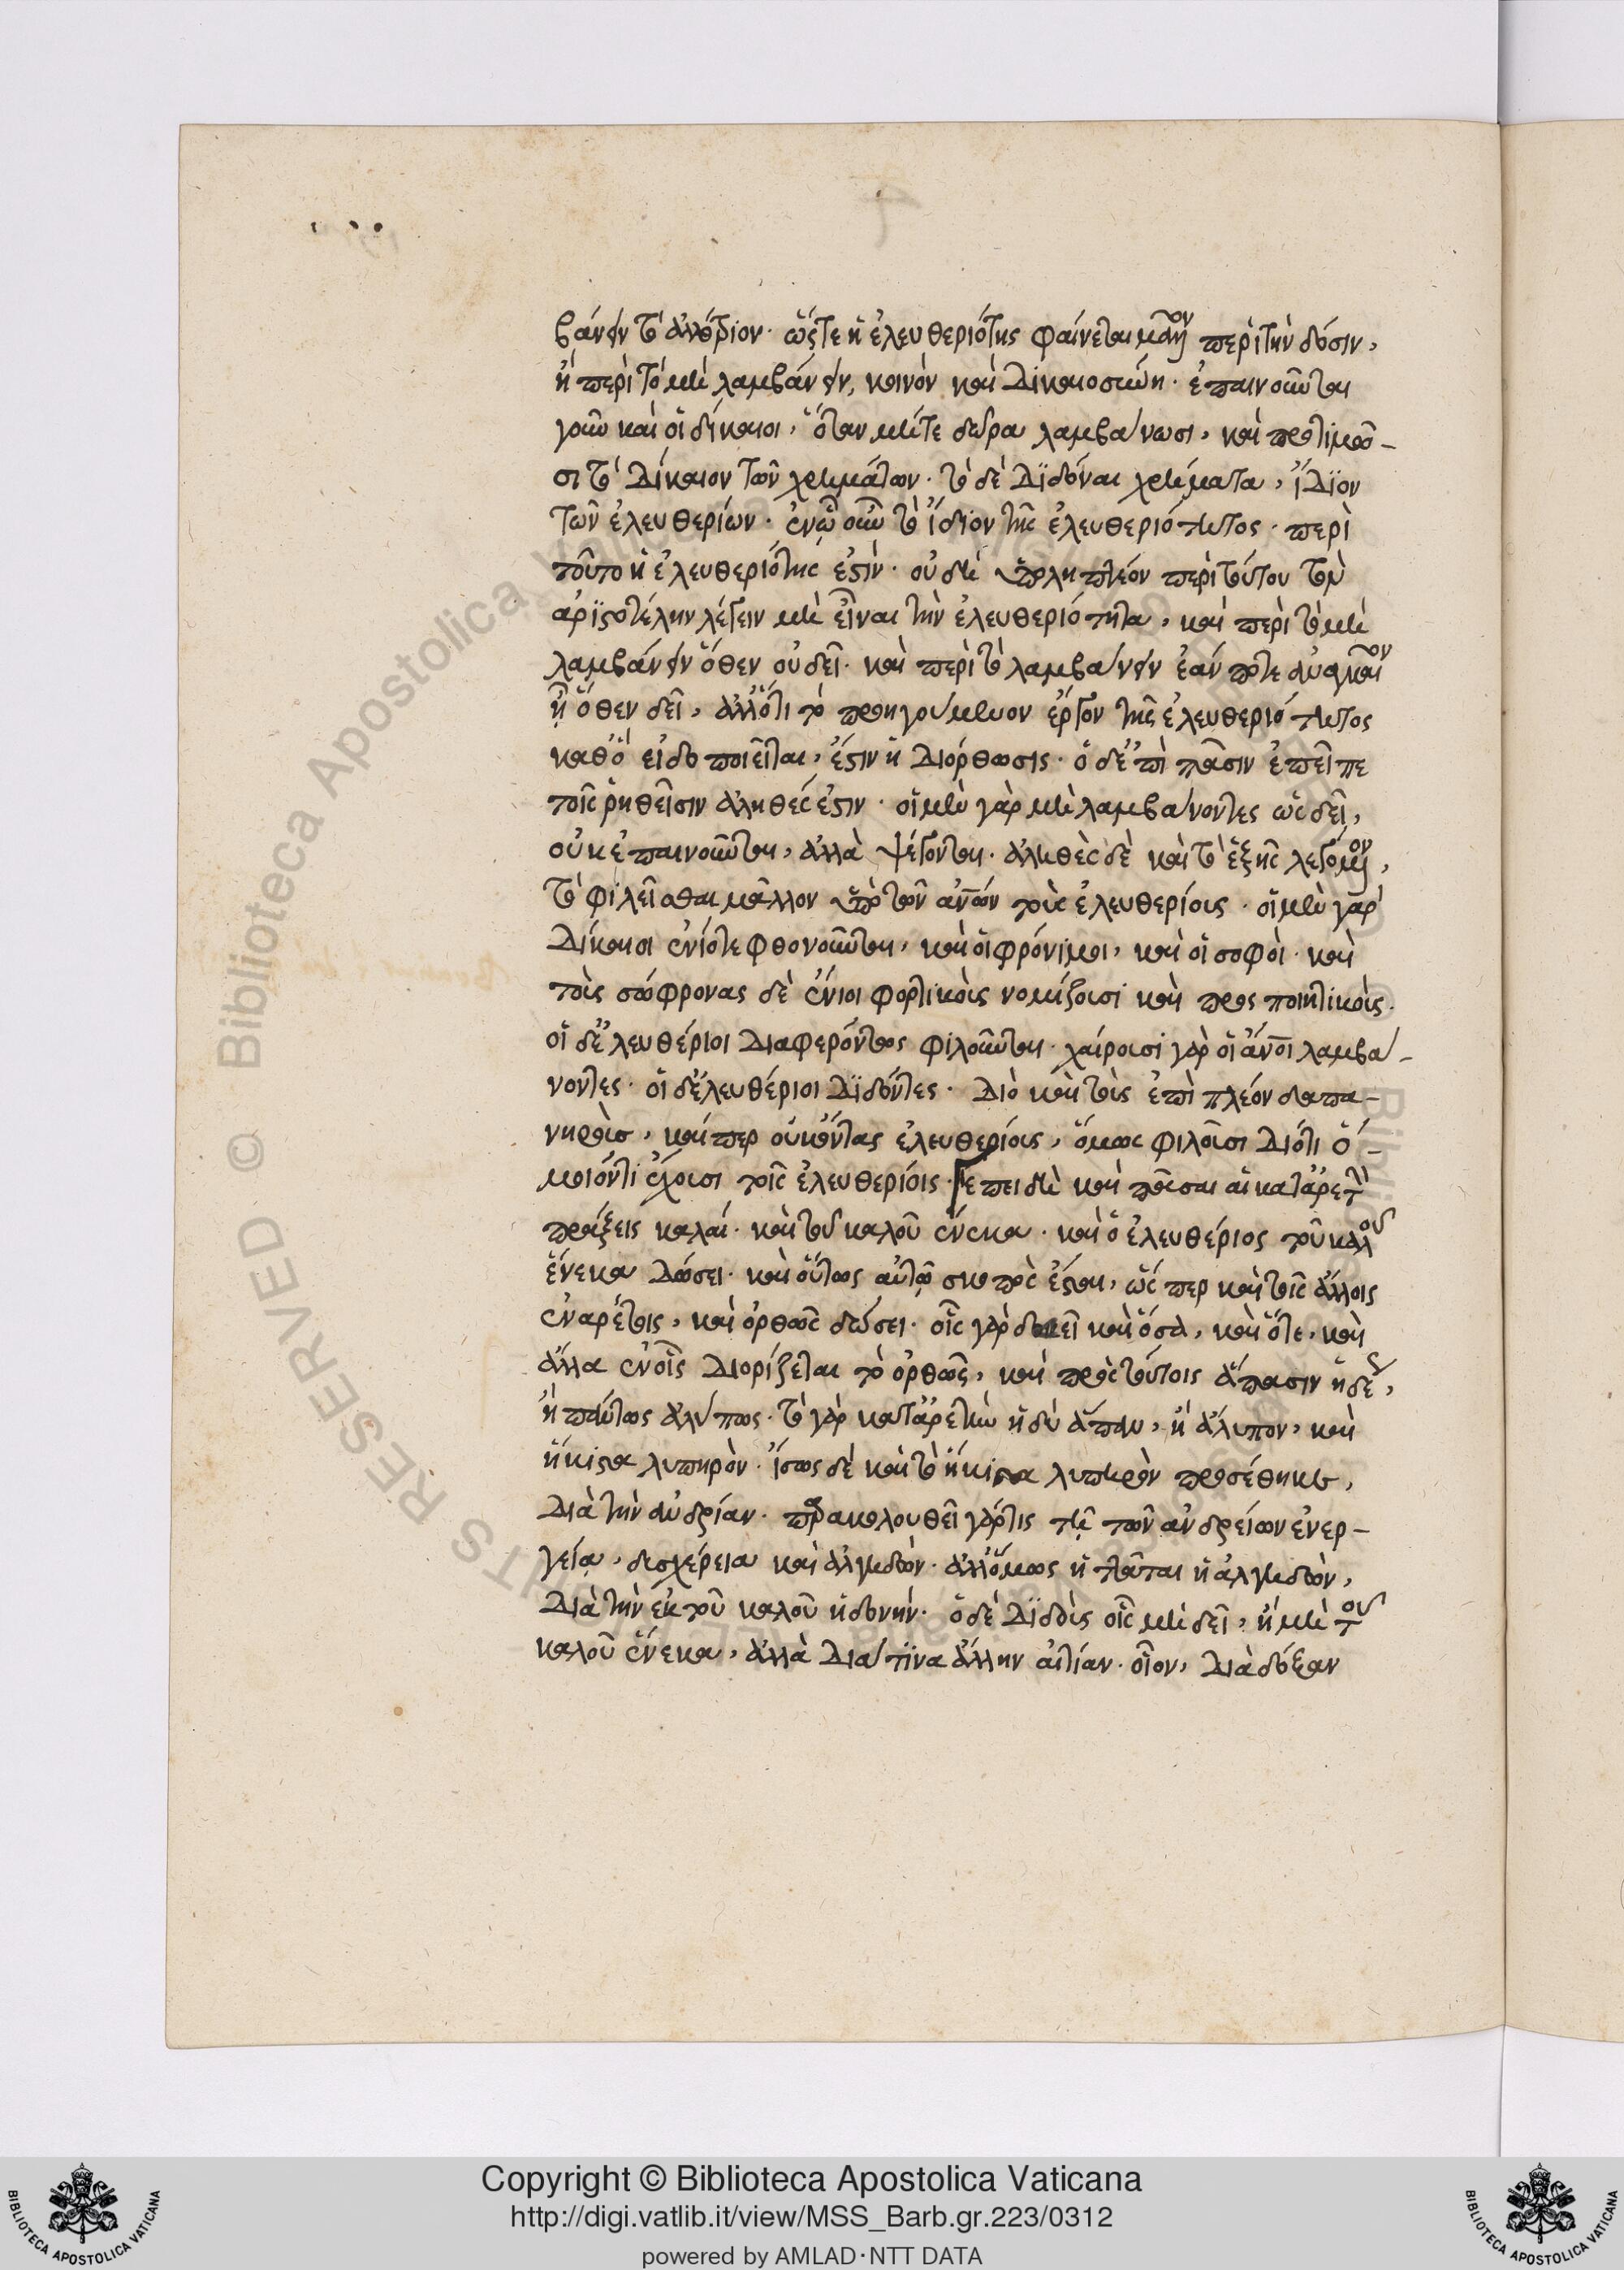 βάνειν τὸ ἀλλότριον· ὥςτε ἡ ἐλευθεριότης φαίνεται μᾶλλον περὶ τὴν δόσιν,
ἢ περὶ τὸ μὴ λαμβάνειν, κοινὸν καὶ δικαιοσύνη· ἐπαινοῦνται
γοῦν καὶ οἱ δίκαιοι, ὅταν μήτε δῶρα λαμβάνωσι, καὶ προτιμῶ-
σι τὸ δίκαιον τῶν χρημάτων· τὸ δὲ διδόναι χρήματα, ἴδιον
τῶν ἐλευθερίων· ἐν ᾧ οὖν τὸ ἴδιον τῆς ἐλευθεριότητος· περὶ
τοῦτο ἡ ἐλευθεριότης ἐστίν· οὐ δὴ πλέον περὶ τούτου τὸν
ἀριστοτέλην λέγειν μὴ εἶναι τὴν ἐλευθεριότητα, καὶ περὶ τὸ μὴ
λαμβάνειν ὅθεν οὐ δεῖ· καὶ περὶ τὸ λαμβάνειν ἐάν ποτε ἀναγκαῖον
ᾖ ὅθεν δεῖ, ἀλλ' ὅτι τὸ προηγούμενον ἔργον τῆς ἐλευθεριότητος
καθ' ὃ εἰδοποιεῖται, ἔστιν ἡ διόρθωσις· ὃ δ' ἐπὶ πᾶσιν ἐπεῖπε
τοῖς ῥηθεῖσιν ἀληθές ἐστιν· οἱ μὲν γὰρ μὴ λαμβάνοντες ὡς δεῖ,
οὐκ ἐπαινοῦνται, ἀλλὰ ψέγονται· ἀληθὲς δὲ καὶ τὸ ἑξῆς λεγόμενον,
τὸ φιλεῖσθαι μᾶλλον ὑπὸ τῶν ἀνων τοὺς ἐλευθερίους· οἱ μὲν γὰρ
δίκαιοι ἐνίοτε φθονοῦνται, καὶ οἱ φρόνιμοι, καὶ οἱ σοφοὶ· καὶ
τοὺς σώφρονας δὲ ἔνιοι φορτικοὺς νομίζουσι καὶ προςποιητικοὺς·
οἱ δ' ἐλευθέριοι διαφερόντως φιλοῦνται· χαίρουσι γὰρ οἱ ἄνοι λαμβά-
νοντες· οἱ δ' ἐλευθέριοι διδόντες· διὸ καὶ τοὺς ἐπὶ πλέον δαπα-
νηροὺς, καίπερ οὐκ ὄντας ἐλευθερίους, ὅμως φιλοῦσι διότι ὅ-
μοιόν τι ἔχουσι τοῖς ἐλευθερίοις· ἐπειδὴ καὶ πᾶσαι αἱ κατ' ἀρετὴν
πράξεις καλαί· καὶ τοῦ καλοῦ ἕνεκα· καὶ ὁ ἐλευθέριος τοῦ καλοῦ
ἕνεκα δώσει· καὶ οὕτως αὐτῷ σκοπὸς ἔσται, ὥς περ καὶ τοῖς ἄλλοις
ἐναρέτοις, καὶ ὀρθῶς δώσει· οἷς γὰρ δεῖ καὶ ὅσα, καὶ ὅτε, καὶ
ἄλλα ἐν οἷς διορίζεται τὸ ὀρθῶς, καὶ πρὸς τούτοις ἅπασιν ἡδέως,
ἢ πάντως ἀλύπως· τὸ γὰρ κατ' ἀρετὴν ἡδὺ ἅπαν, ἢ ἄλυπον, καὶ
ἥκιστα λυπηρὸν· ἴσως δὲ καὶ τὸ ἥκιστα λυπηρὸν προσέθηκε,
διὰ τὴν ἀνδρίαν· παρακολουθεῖ γάρ τις τῇ τῶν ἀνδρείων ἐνερ-
γείᾳ, δυσχέρεια καὶ ἀλγηδών· ἀλλ' ὅμως ἡττᾶται ἡ ἀλγηδὼν,
διὰ τὴν ἐκ τοῦ καλοῦ ἡδονήν· ὁ δὲ διδοὺς οἷς μὴ δεῖ, ἢ μὴ τοῦ
καλοῦ ἕνεκα, ἀλλὰ διά τινα ἄλλην αἰτίαν· οἷον, διὰ δόξαν
Copyright © Biblioteca Apostolica Vaticana
http://digi.vatlib.it/view/MSS_Barb.gr.223/0312
powered by AMLAD·NTT DATA